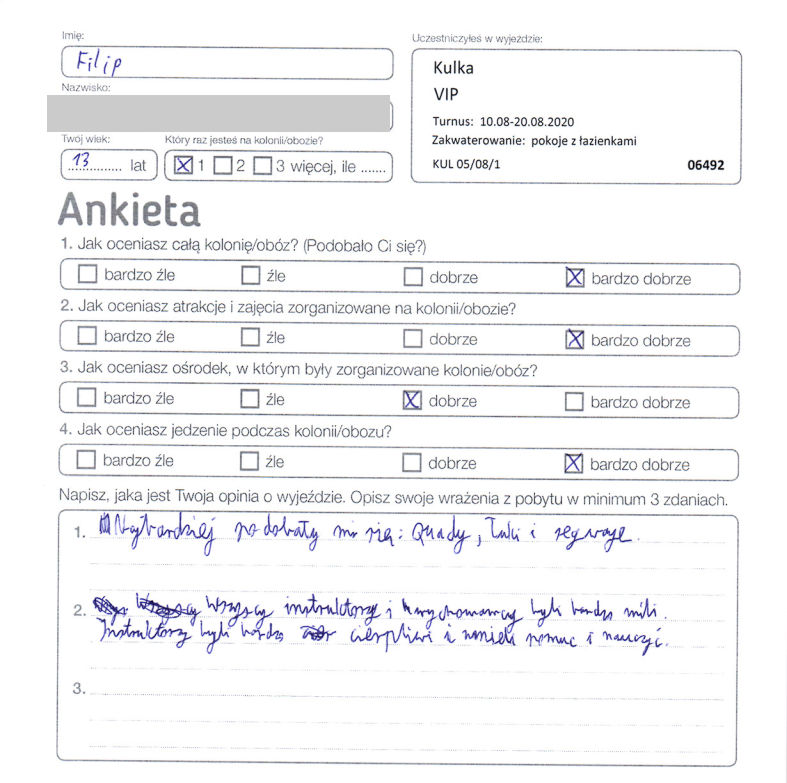 Imię:
Filip
Nazwisko:
Twój wiek:
13 lat
Który raz jesteś na kolonii/obozie?
1 2 3 więcej, ile .......
Uczestniczyłeś w wyjeździe:
Kulka
VIP
Turnus: 10.08-20.08.2020
Zakwaterowanie: pokoje z łazienkami
KUL 05/08/1 06492
Ankieta
1. Jak oceniasz całą kolonię/obóz? (Podobało Ci się?)
bardzo źle źle dobrze bardzo dobrze
2. Jak oceniasz atrakcje i zajęcia zorganizowane na kolonii/obozie?
bardzo źle źle dobrze bardzo dobrze
3. Jak oceniasz ośrodek, w którym były zorganizowane kolonie/obóz?
bardzo źle źle dobrze bardzo dobrze
4. Jak oceniasz jedzenie podczas kolonii/obozu?
bardzo źle źle dobrze bardzo dobrze
Napisz, jaka jest Twoja opinia o wyjeździe. Opisz swoje wrażenia z pobytu w minimum 3 zdaniach.
1. Najbardziej podobały mi się: Quady, i segwaye.
2. Wszyscy instruktorzy i wychowawcy byli bardzo mili.
Instruktorzy byli bardzo cierpliwi i umieli pomuc i nauczyć.
3.